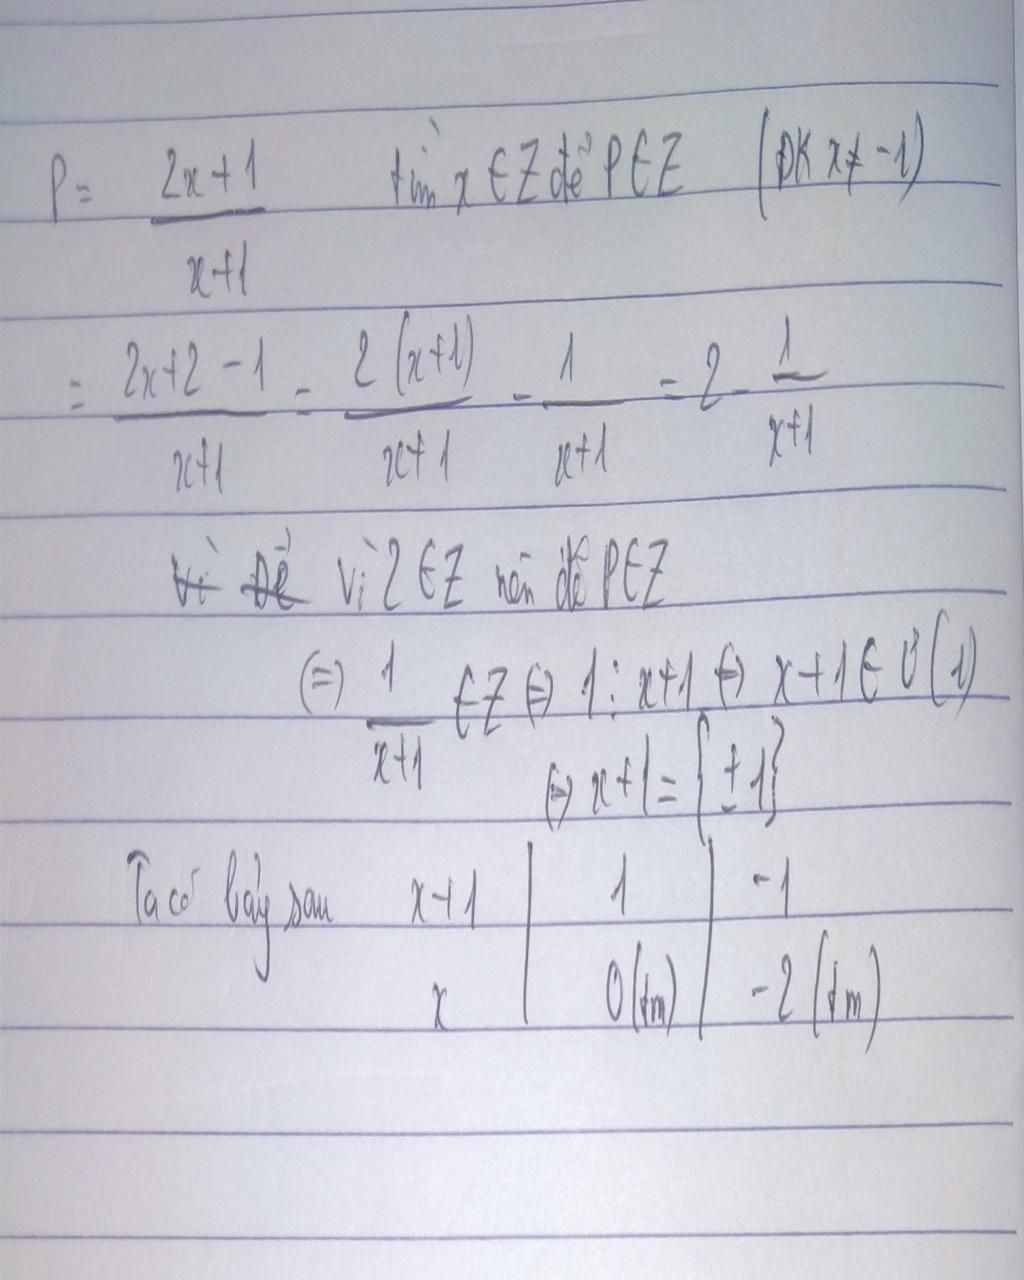 P = (2x+1)/(x+1) tìm x ∈ Z để P ∈ Z (ĐK x ≠ -1)
= (2x+2-1)/(x+1) = 2(x+1)/(x+1) - 1/(x+1) = 2 - 1/(x+1)
Vì Để Vì 2 ∈ Z nên để P ∈ Z
⇔ 1/(x+1) ∈ Z ⇔ 1 ⋮ x+1 ⇔ x+1 ∈ Ư(1)
⇔ x+1 = {±1}
Ta có bảy sau x+1 | 1 | -1
x | 0 (tm) | -2 (tm)